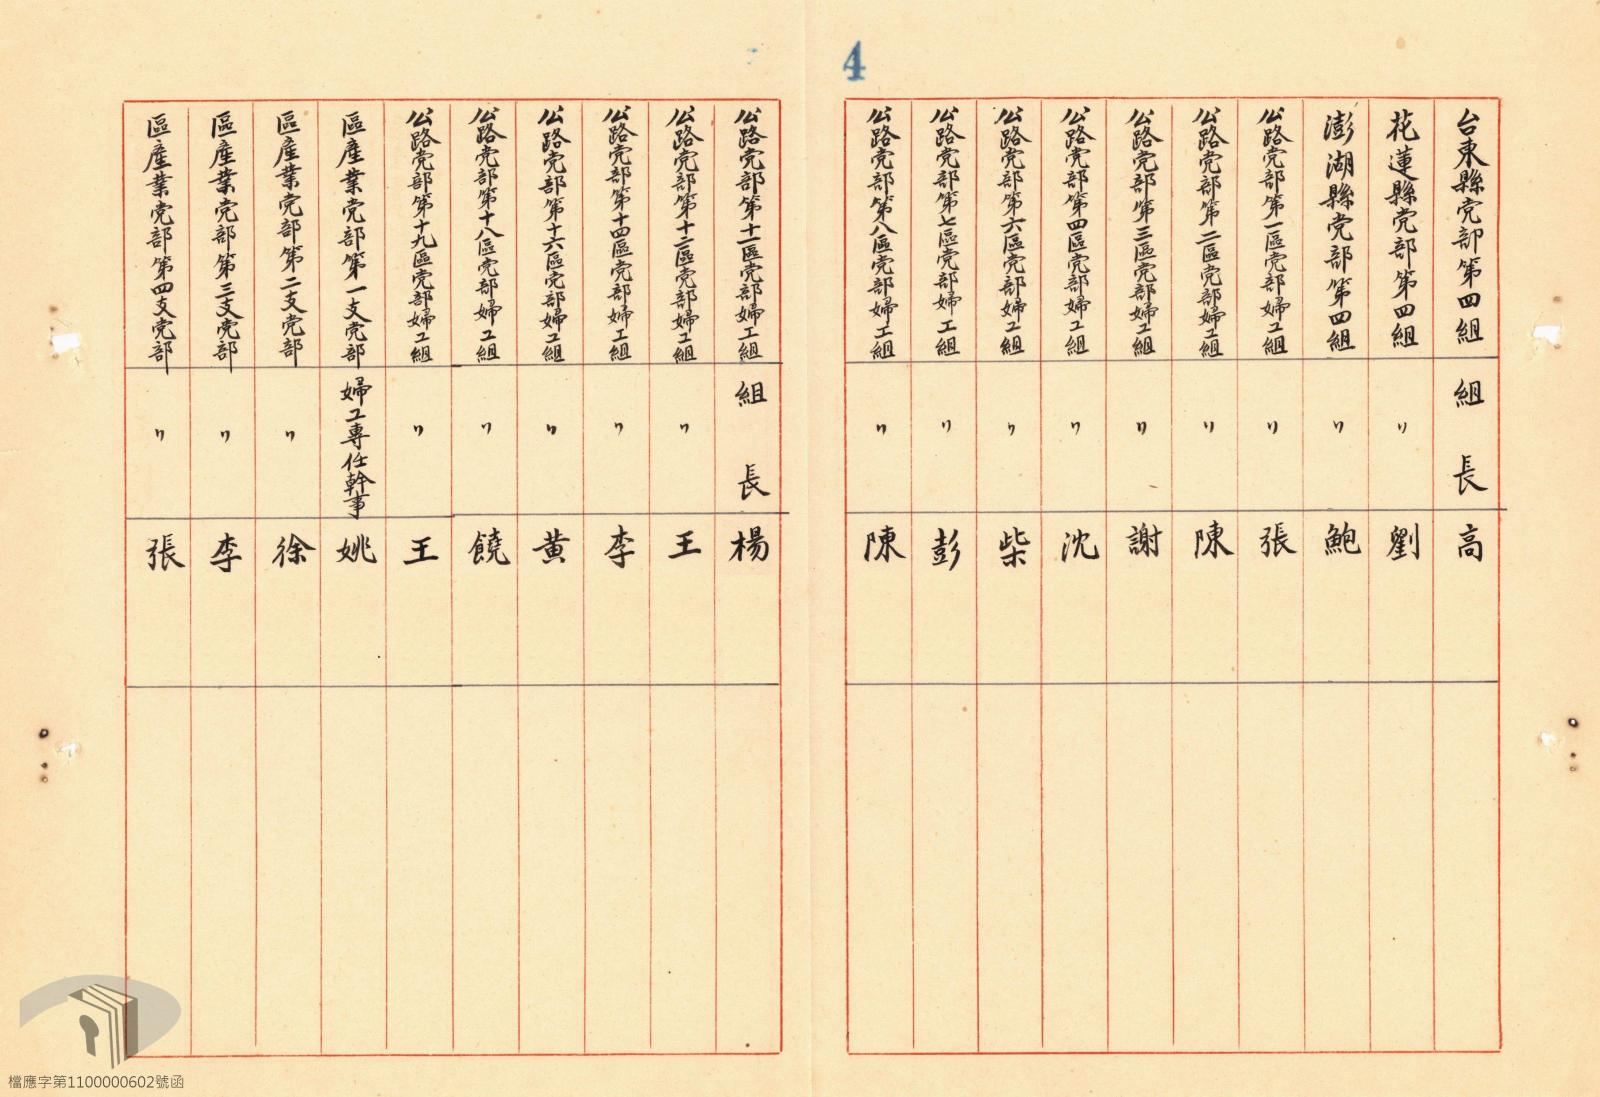 4
台東縣党部第四組 組長 高
花蓮縣党部第四組 〃 劉
澎湖縣党部第四組 〃 鮑
公路党部第一區党部婦工組 〃 張
公路党部第二區党部婦工組 〃 陳
公路党部第三區党部婦工組 〃 謝
公路党部第四區党部婦工組 〃 沈
公路党部第六區党部婦工組 〃 柴
公路党部第七區党部婦工組 〃 彭
公路党部第八區党部婦工組 〃 陳
公路党部第十一區党部婦工組 組長 楊
公路党部第十二區党部婦工組 〃 王
公路党部第十四區党部婦工組 〃 李
公路党部第十六區党部婦工組 〃 黄
公路党部第十八區党部婦工組 〃 饒
公路党部第十九區党部婦工組 〃 王
區產業党部第一支党部 婦工專任幹事 姚
區產業党部第二支党部 〃 徐
區產業党部第三支党部 〃 李
區產業党部第四支党部 〃 張
檔應字第1100000602號函